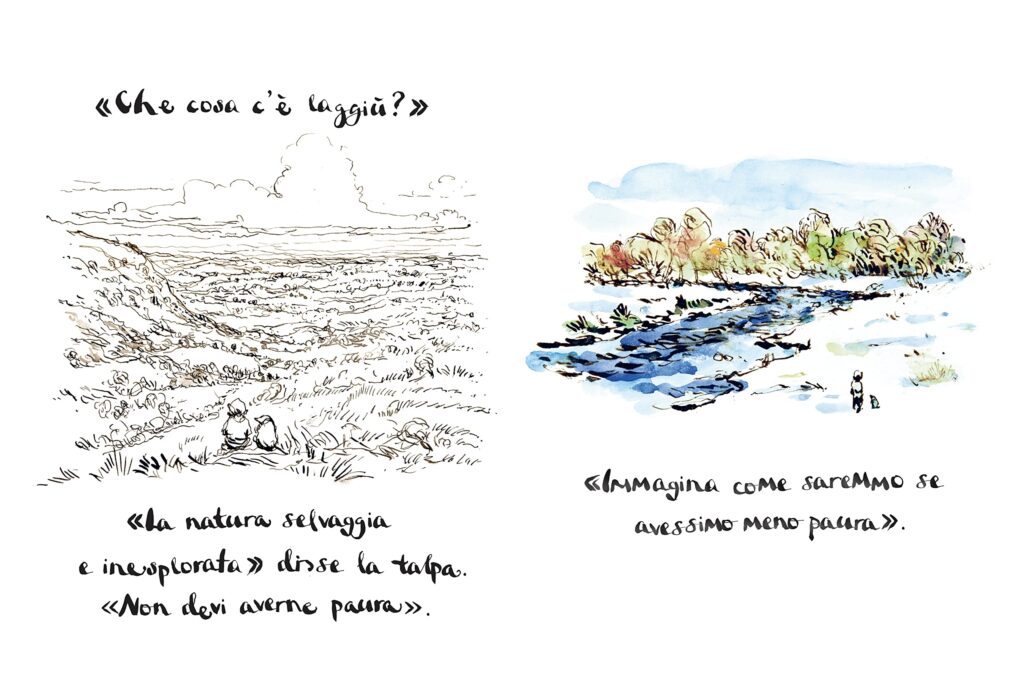 «Che cosa c'è laggiù?»
«La natura selvaggia
e inesplorata» disse la talpa.
«Non devi averne paura».
«Immagina come saremmo se
avessimo meno paura».